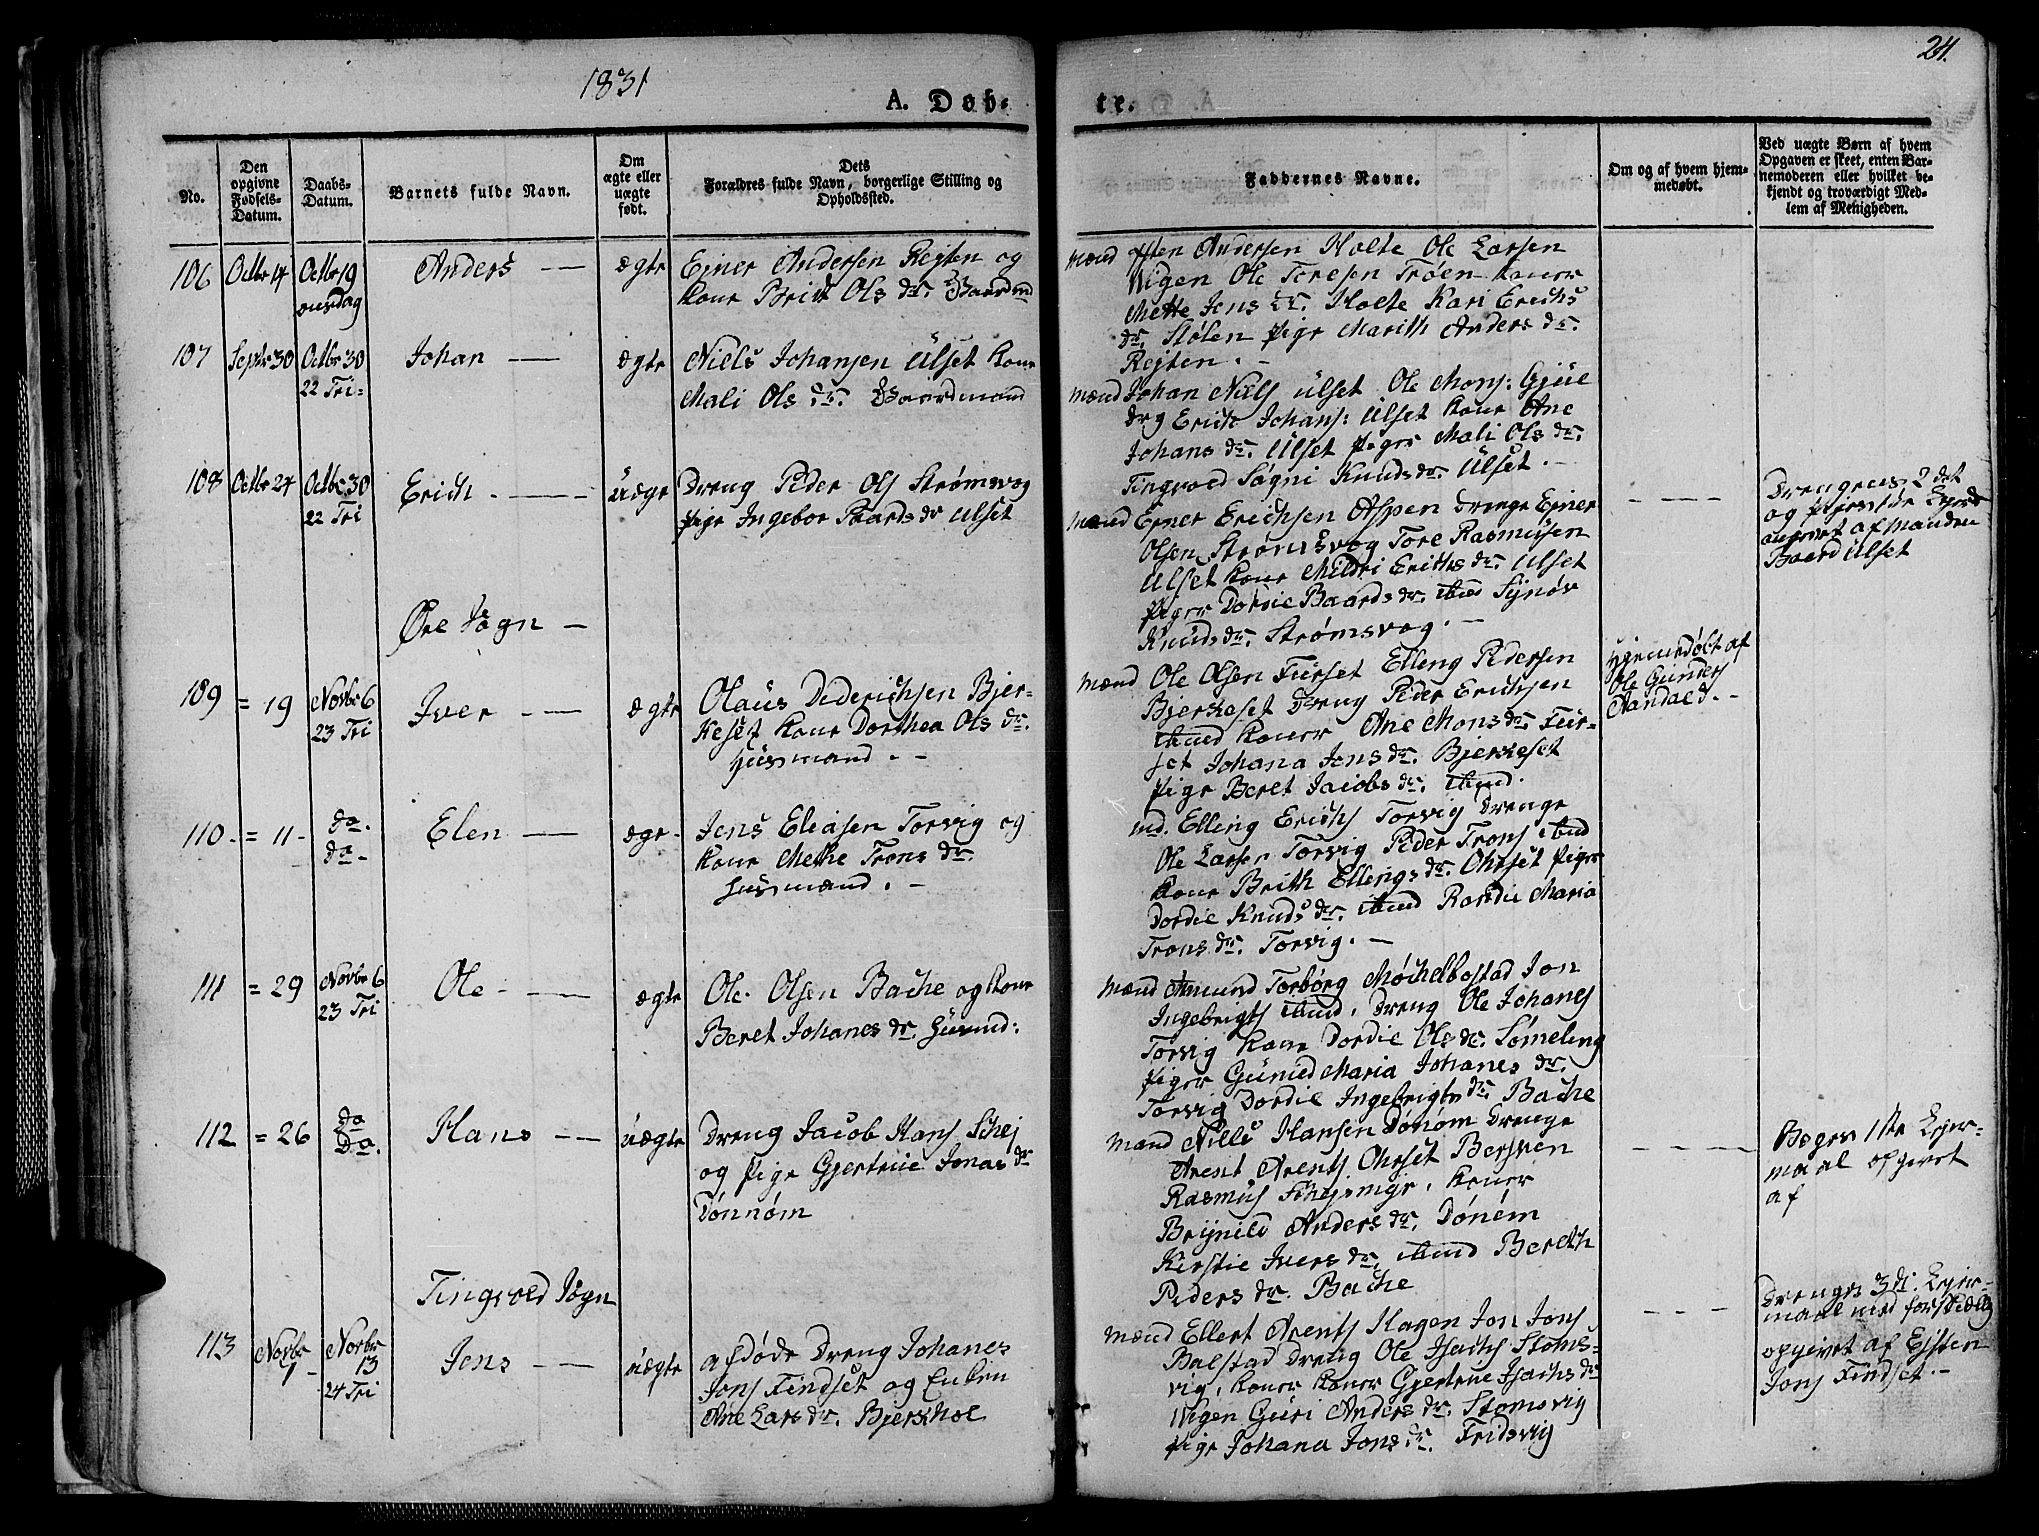 1831
24.
A. Døb-
te.
No.
Den opgivne Fødsels-Datum.
Daabs-Datum.
Barnets fulde Navn.
Om ægte eller uægte født.
Dets Forældres fulde Navn, borgerlige Stilling og Opholdssted.
Faddernes Navne.
Om og af hvem hjemmedøbt.
Ved uægte Børn af hvem Opgaven er skeet, enten Barnemoderen eller hvilket bekjendt og troværdigt Medlem af Menigheden.
106 Octbr 14 Octbr 19 Anders ægte Ejner Andersen Rejten og
onsdag Kone Brit Ols dr. Gaardmd
mænd Esten Andersen Holte Ole Larsen
Vigen Ole Toresen Trøen Koner
Mette Jens dr. Holte Kari Erichs
dr. Stølen Pige Marith Anders dr.
Rejten. -
107 Septbr 30 Octbr 30 Johan ægte Niels Johansen Ulset Kone
22 Tri= Mali Ols dr. Gaardmand
mænd Johan Nils Ulset Ole Mons: Gjül
drg Erich Johans: Ulset Kone Ane
Johans dr. Ulset Piger Mali Ols dr.
Tingvold Sogn Knuds dr Ulset. -
108 Octbr 24 Octbr 30 Erich. uægte Dreng Peder Ols Strømsvog
22 Tri Pige Ingebor Baards dr Ulset
mænd Ejner Erichsen Aspen Drenge Ejner
Olsen Strømsvog Tore Rasmusen
Ulset Kone Mildri Erichs dr. Ulset
Piger Dordie Baards dr. ibid Synøv
Knuds dr. Strømsvog. -
Drengens 2 det
og Pigens 1ste Lejerm
angivet af Manden
Baard Ulset
Øre Sogn -
109 = 19 Novbr 6 Iver ægte Olaus Dederichsen Bjer-
23 Tri keset Kone Dorthea Ols dr.
Husmand. -
mænd Ole Olsen Furset Elling Pedersen
Bjerkeset Dreng Peder Erichsen
ibid Koner Ane Mons dr. Fur-
set Johana Jens dr. Bjerkeset
Pige Beret Jacobs dr. ibid.
Hjemmedøbt af
Ole Gunders
Aandal. -
110. = 11 do. Elen ægte Jens Eliasen Torvig og
do. Kone Mette Trons dr.
Husmand. -
md. Elling Erichs Torvig Drenge
Ole Larsen Torvig Peder Trons ibid
Kone Brith Ellings dr. Ohrset Piger
Dordie Knuds dr. ibid Randie Maria
Trons dr. Torvig. -
111 = 29 Novbr 6 Ole ægte Ole Olsen Bache og Kone
23 Tri Beret Johanes dr. Husmd:
mænd Amund Torborg Møchelbostad Jon
Ingebrigts ibid, Dreng Ole Johanes
Torvig Kone Dordie Ols dr. Sømeling
Piger Gunild Maria Johanes dr.
Torvig Dordie Ingebrigts dr. Bache
112 = 26 do Hans uægte Dreng Jacob Hans Schej
Do. og Pige Gjertrue Jonas dr
Dønnøm
mænd Nills Hansen Dønøm Drenge
Arent Arents Ohrset Bersven
Rasmus Schejsmyr, Koner
Brynild Anders dr. Dønem
Kirstie Ivers dr. ibid Bereth
Peders dr. Bache
Beges 1ste Lejer-
maal opgivet
af
Tingvold Sogn
113 Novbr Novbr Jens uægte afdøde Dreng Johanes
1 13 Jons Findset og Enken
24 Tri Ane Lars dr. Bjerkhol
mænd Ellert Arents Hagen Jon Jons
Balstad Dreng Ole Isachs Stoms-
vig, Koner Koner Gjertrue Isachs dr
Vigen Guri Anders dr. Stomsvig
Pige Johana Jons dr. Fridsvig
Drenges 3de Lejer-
maal med forskiællig
opgivet af Esten
Jons Findset. -